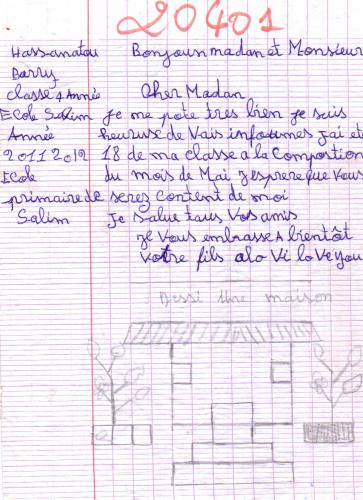 20401
Hassanatou Bonjour madan et Monsieur
Barry
classe 4 Année Cher Madan
Ecole Salim je me pote tres bien je suis
Année heureuse de vais infoumes j'ai et
2011 2012 18 de ma classe a la Compostion
Ecole du mois de Mai J'esprere que Vous
primaire de serez content de moi
Salim Je Salue taus Vos amis
Je Vous embrasse A bientôt
Votre fils alo Vi love you
Dessi Une maison